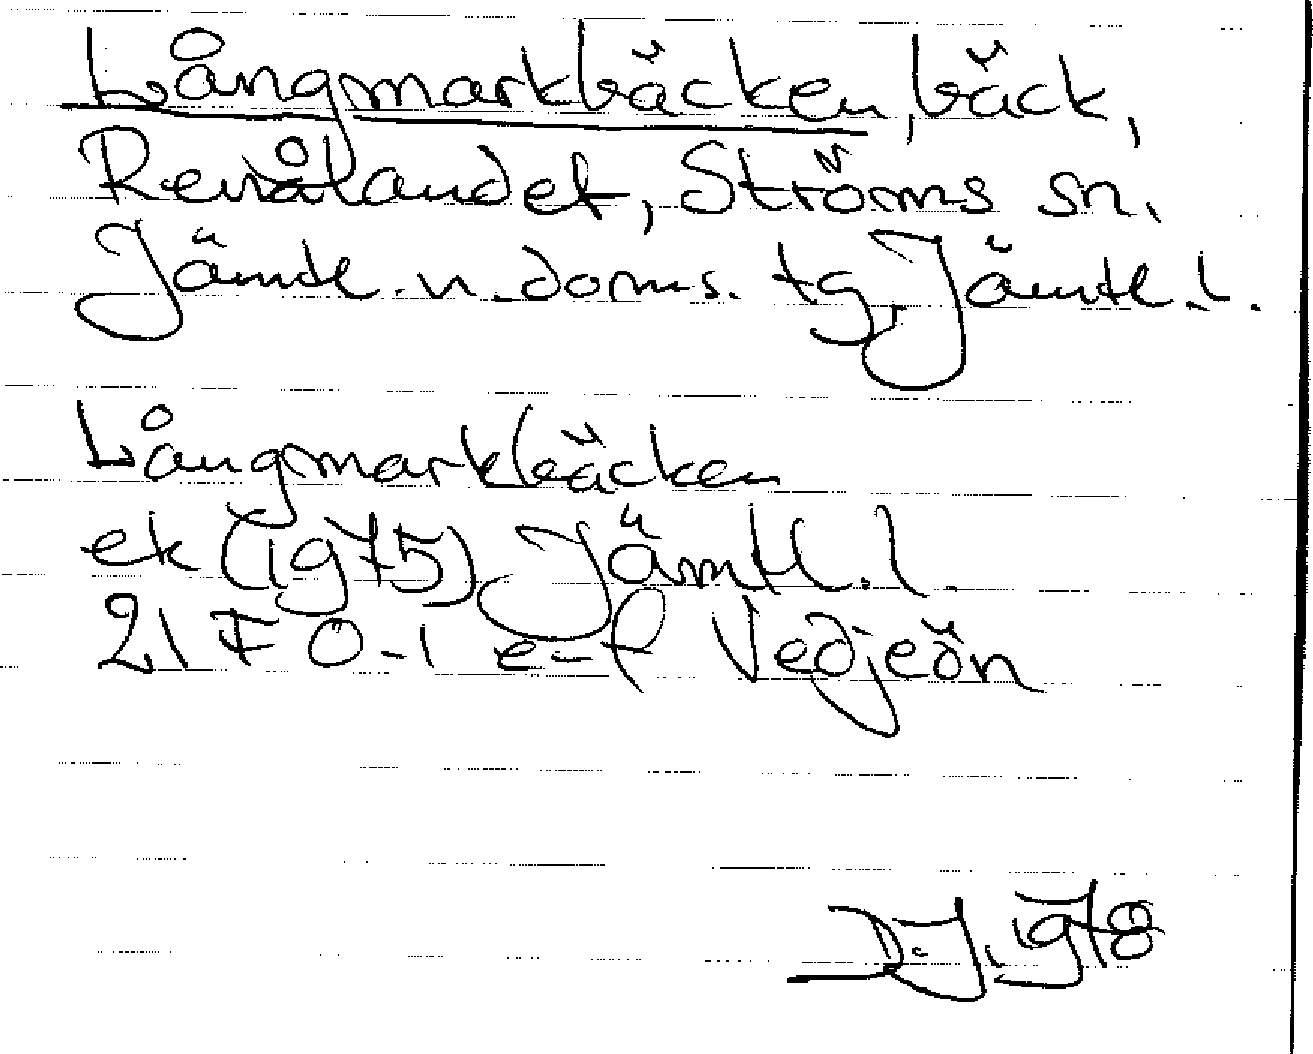 Långmarkbäcken, bäck,
Renålandet, Ströms sn.
Jämtl. n. doms. tg, Jämtl. l.
Långmarkbäcken
ek (1975) Jämtl. l.
21 F 0-1 e-f Vedjeön
D.J. 1978